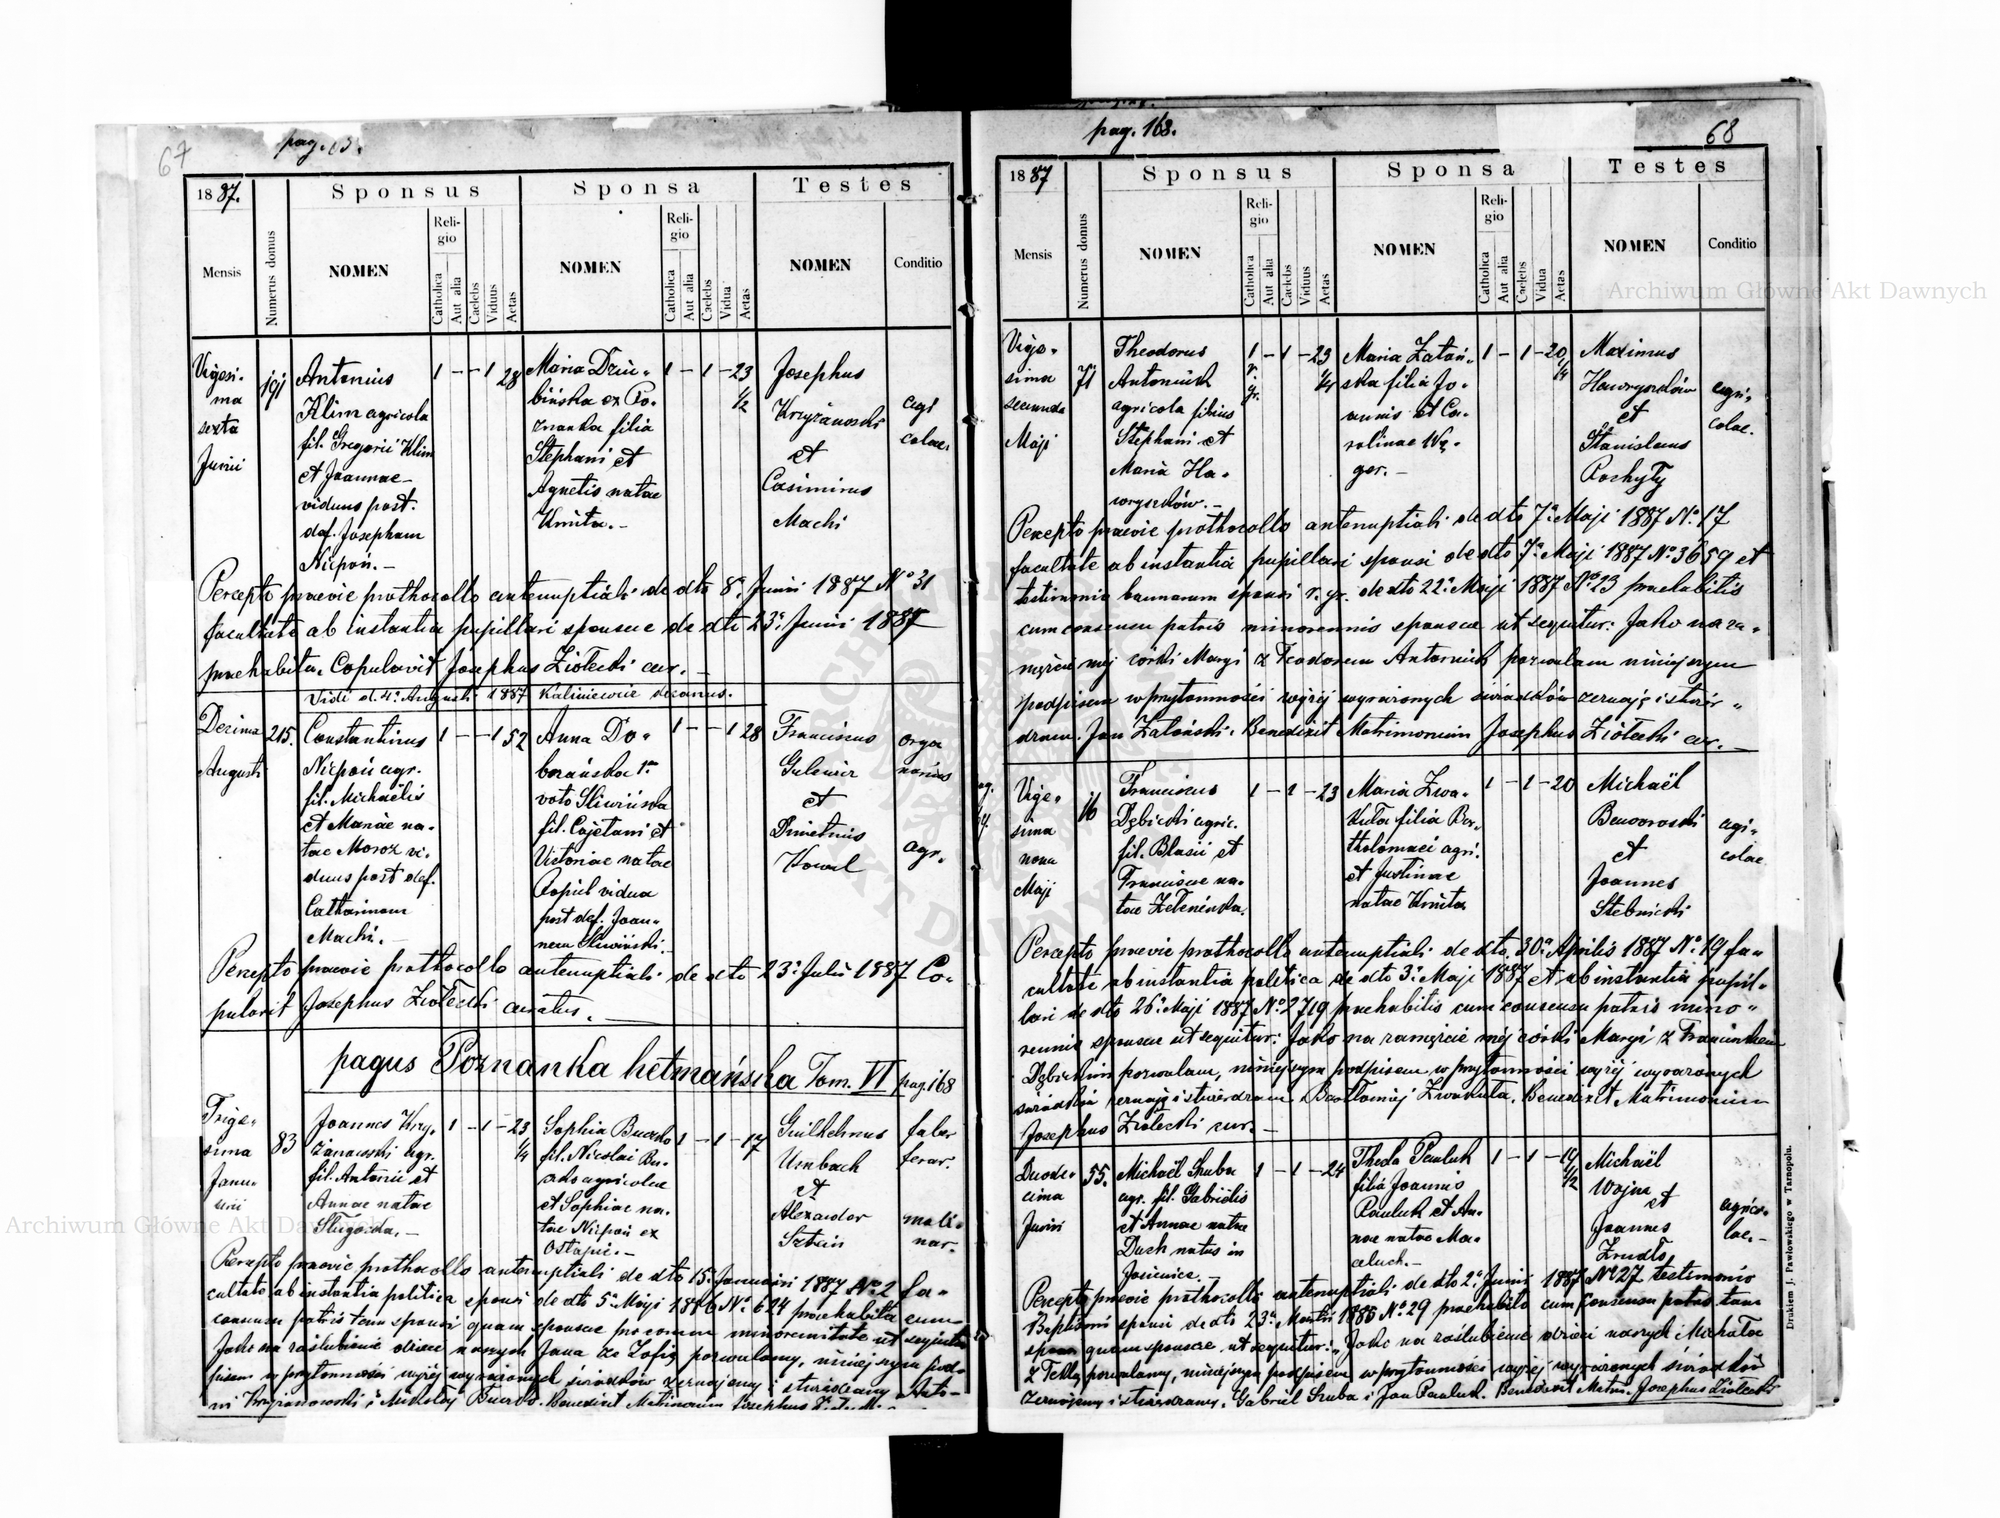 67
pag. 
1887.
Sponsus
Sponsa
Testes
Mensis
Numerus domus
NOMEN
Religio
Catholica
Aut alia
Caelebs
Viduus
Aetas
NOMEN
Religio
Catholica
Aut alia
Caelebs
Vidua
Aetas
NOMEN
Conditio
Vigesi-
ma
sexta
Junii
Antonius
Klim agricola
fil. Gregorii Klim
et Joannae
viduus post.
def. Josepham
Niepoń.-
1 - - 1 28
Maria Dziu-
bińska ex Po-
znanka filia
Stephani et
Agnetis natae
Kmita.-
1 - 1 - 23
1/2
Josephus
Krzyżanowski
et
Casimirus
Machi
agri
colae.
Percepto praevie prothocollo antenuptiali de dto 8. Junii 1887 No 31
facultate ab instantia pupillari sponsae de dto 23. Junii 1887
praehabita. Copulavit Josephus Ziołecki cur.-
Vidi d. 4. Augusti 1887 Kaliniewicz decanus.
Decima
Augusti
215.
Constantinus
Niepoń agr.
fil. Michaelis
et Mariae na-
tae Moroz vi-
duus post def.
Catharinam
Machi.-
1 - - 1 52
Anna Do-
borańska 1.
voto Śliwińska
fil. Cajetani et
Victoriae natae
Popiel vidua
post def. Joan-
nem Śliwiński.
1 - - 1 28
Franciscus
et
Dimetrius
Kowal
orga
narius
agr.
Percepto praevie prothocollo antenuptiali de dto 23. Julii 1887 Co-
pulavit Josephus Ziołecki curatus.-
pagus Poznanka hetmańska Tom. VI pag. 168
Trige-
sima
Janu-
arii
83
Joannes Krzy-
żanowski agr.
fil. Antonii et
Annae natae
Sługocka.-
1 - 1 - 23
1/4
Sophia Buczko
fil. Nicolai Bu-
czko agricolae
et Sophiae na-
tae Niepoń ex
Ostapie.-
1 - 1 - 17
Guilhelmus
Umbach
et
Alexander
Sztein
faber
ferar.
moli-
nar.
Percepto praevie prothocollo antenuptiali de dto 15. Januarii 1887 No. 2 fa-
cultate ab instantia politica sponsi de dto 5. Maji 1886 No. 624 praehabita cum
consensu patris tam sponsi quam sponsae pro eorum minorennitate ut sequitur
Jako na zaślubienie dzieci naszych Jana ze Zofią pozwalamy, niniejszym pod-
pisem w przytomności wyżej wyrażonych świadków zeznajemy i stwierdzamy Anto-
ni Krzyżanowski i Mikołaj Buczko. Benedixit Matrimonium Josephus
pag. 168.
68
1887
Sponsus
Sponsa
Testes
Mensis
Numerus domus
NOMEN
Religio
Catholica
Aut alia
Caelebs
Viduus
Aetas
NOMEN
Religio
Catholica
Aut alia
Caelebs
Vidua
Aetas
NOMEN
Conditio
Vige-
sima
secunda
Maji
71
Theodorus
Antoniuk
agricola filius
Stephani et
Maria Ha-
wryszków.-
1 - 1 - 23
r.
gr.
1/4
Maria Zatoń-
ska filia Jo-
annis et Ca-
rolinae Wę-
ger.-
1 - 1 - 20
1/4
Maximus
Hawryszków
et
Stanislaus
Rochyty
agri-
colae.
Percepto praevie prothocollo antenuptiali de dto 7. Maji 1887 No. 17
facultate ab instantia pupillari sponsi de dto 7. Maji 1887 No. 3659 et
testimonio bannorum sponsi r. gr. de dto 22. Maji 1887 No 23 praehabitis
cum consensu patris minorennis sponsae ut sequitur: Jako na za-
męście mej córki Maryi z Teodorem Antoniuk pozwalam niniejszym
podpisem w przytomności wyżej wyrażonych świadków zeznaję i stwier-
dzam. Jan Zatoński. Benedixit Matrimonium Josephus Ziołecki cur.-
Vige-
sima
nona
Maji
16
Franciscus
Dębicki agric.
fil. Blasii et
Franciscae na-
tae Zelenińska.
1 - 1 - 23
Maria Zwa-
ryłuta filia Bar-
tholomaei agri.
et Justinae
natae Kmita
1 - 1 - 20
Michaël
Benworoski
et
Joannes
Stebnicki
agri-
colae.
Percepto praevie prothocollo antenuptiali de dto. 30. Aprilis 1887 No. 19 fa-
cultate ab instantia politica de dto 3. Maji 1887 et ab instantia pupil-
lari de dto 26. Maji 1887 No 2719 praehabitis cum consensu patris mino-
rennis sponsae ut sequitur: Jako na zamęście mej córki Maryi z Franciszkiem
Dębickim pozwalam, niniejszym podpisem w przytomności wyżej wyrażonych
świadków zeznaję i stwierdzam Bartłomiej. Benedixit Matrimonium
Josephus Ziołecki cur.-
Duode-
cima
Junii
55.
Michaël Szuba
agr. fil. Gabriëlis
et Annae natae
Duch natus in
Josicwice.
1 - 1 - 24
Thecla Pauluk
filia Joannis
Pauluk et An-
nae natae Ma-
celuch.-
1 - 1 - 19
1/2
Michaël
Wojna
et
Joannes
Zrudło
agrico-
lae.-
Percepto praevie prothocollo antenuptiali de dto 2. Junii 1887 No 27 testimonio
Baptismi sponsi de dto 23. Martii 1886 No. 29 praehabito cum consensu patris tam
sponsi quam sponsae, ut sequitur: Jako na zaślubienie dzieci naszych Michała
z Teklą pozwalamy, niniejszym podpisem w przytomności wyżej wyrażonych świadków
zeznajemy i stwierdzamy. Gabriel Szuba i Jan Pauluk. Benedixit Matri. Josephus Ziołecki
Drukiem J. Pawłowskiego w Tarnopolu.
Archiwum Główne Akt Dawnych
Archiwum Główne Akt Dawnych